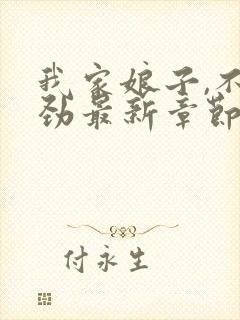 我家娘子,不
劲最新章节
付永生